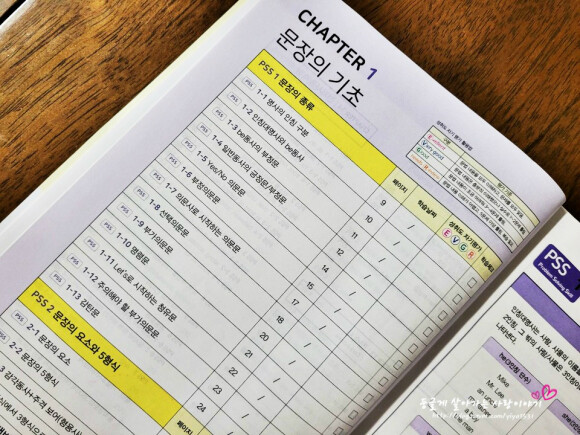 CHAPTER 1
문장의 기초
성취도 자기 평가 활용법
Excellent
Very good
Good
PSS 1 문장의 종류
페이지
학습날짜
성취도 자기평가
E V G R
학습체크
PSS 1-1 명사의 인칭 구분 9 /
PSS 1-2 인칭대명사와 be동사 10 /
PSS 1-3 be동사의 부정문 11 /
PSS 1-4 일반동사의 긍정문/부정문 12 /
PSS 1-5 Yes/No 의문문 14 /
PSS 1-6 부정의문문 15 /
PSS 1-7 의문사로 시작하는 의문문 16 /
PSS 1-8 선택의문문 17 /
PSS 1-9 부가의문문 18 /
PSS 1-10 명령문 20 /
PSS 1-11 Let's로 시작하는 청유문 21 /
PSS 1-12 주의해야 할 부가의문문 22 /
PSS 1-13 감탄문 24
PSS 2 문장의 요소와 5형식
페이지
2-1 문장의 요소
2-2 문장의 형식
3 감각동사+주격 보어(형용사)
PSS
Problem Solving Skill
인칭대명사는 사람, 사물의 이름을
2인칭, 그 밖의 사람/사물은 3인칭이
나타낸다.
he(3인칭 단수)
Mike
Mr. Lee
동글게 살아가는 사람이야기